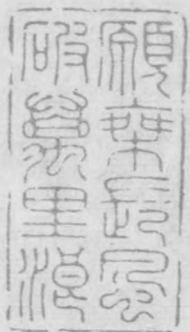 願乘長風
破萬里浪